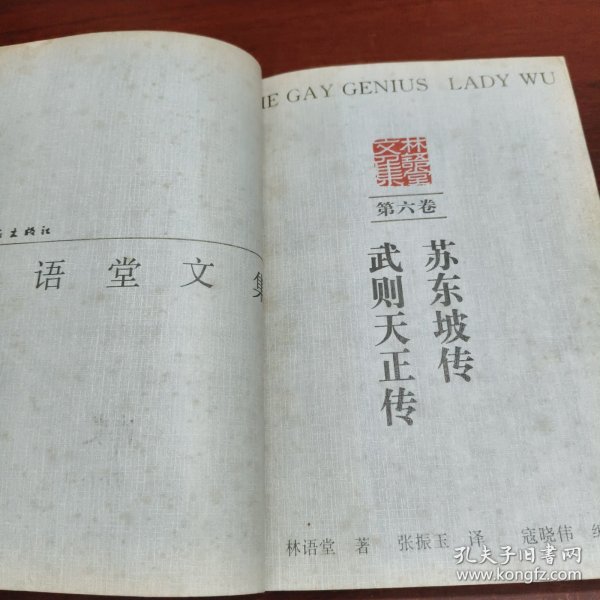 语堂文集
THE GAY GENIUS LADY WU
林語堂文集
第六卷
苏东坡传
武则天正传
林语堂 著 张振玉 译 寇晓伟 编
孔夫子旧书网
www.kongfz.com